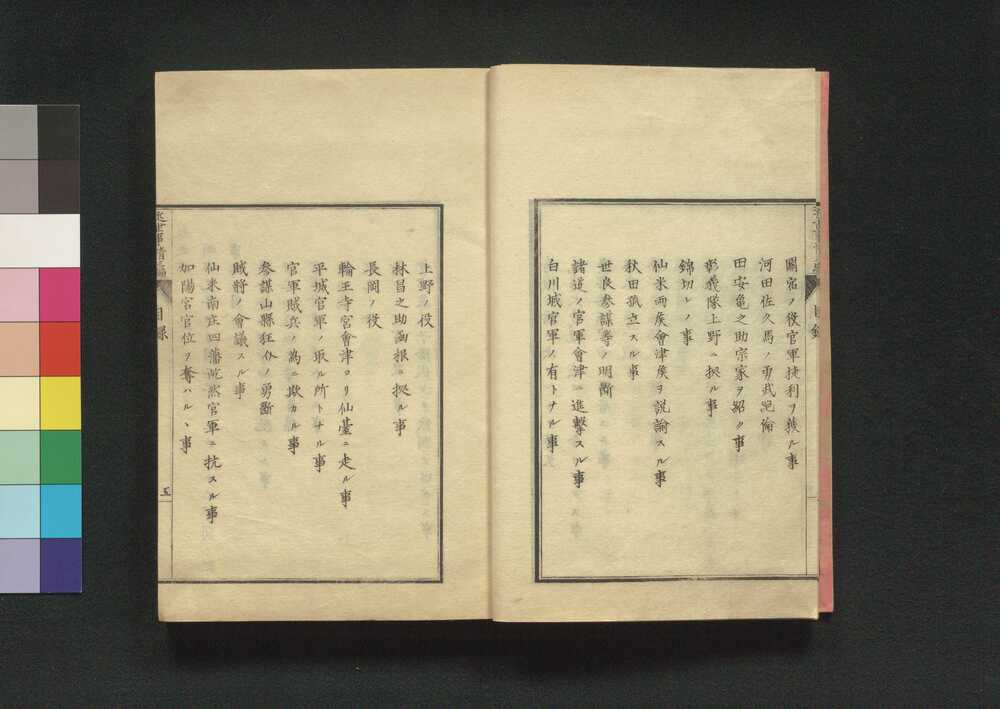 圖宿ノ役官軍捷利ヲ獲ル事
河田佐久馬ノ勇武絶倫
田安亀之助宗家ヲ紹ク事
彰義隊上野ニ拠ル事
錦切レノ事
仙米両矦會津矦ヲ説諭スル事
秋田孤立スル事
世良参謀等ノ明斷
諸道ノ官軍會津ニ進撃スル事
白川城官軍ノ有トナル事
上野ノ役
林昌之助函根ニ拠ル事
長岡ノ役
輪王寺宮會津ヨリ仙臺ニ走ル事
平城官軍ノ取ル所トナル事
官軍賊兵ノ為ニ欺カル事
参謀山縣狂介ノ勇斷
賊將ノ會議スル事
仙米南庄四藩斷然官軍ニ抗スル事
加陽宮官位ヲ奪ハルヽ事
近世事情三編
目録
五